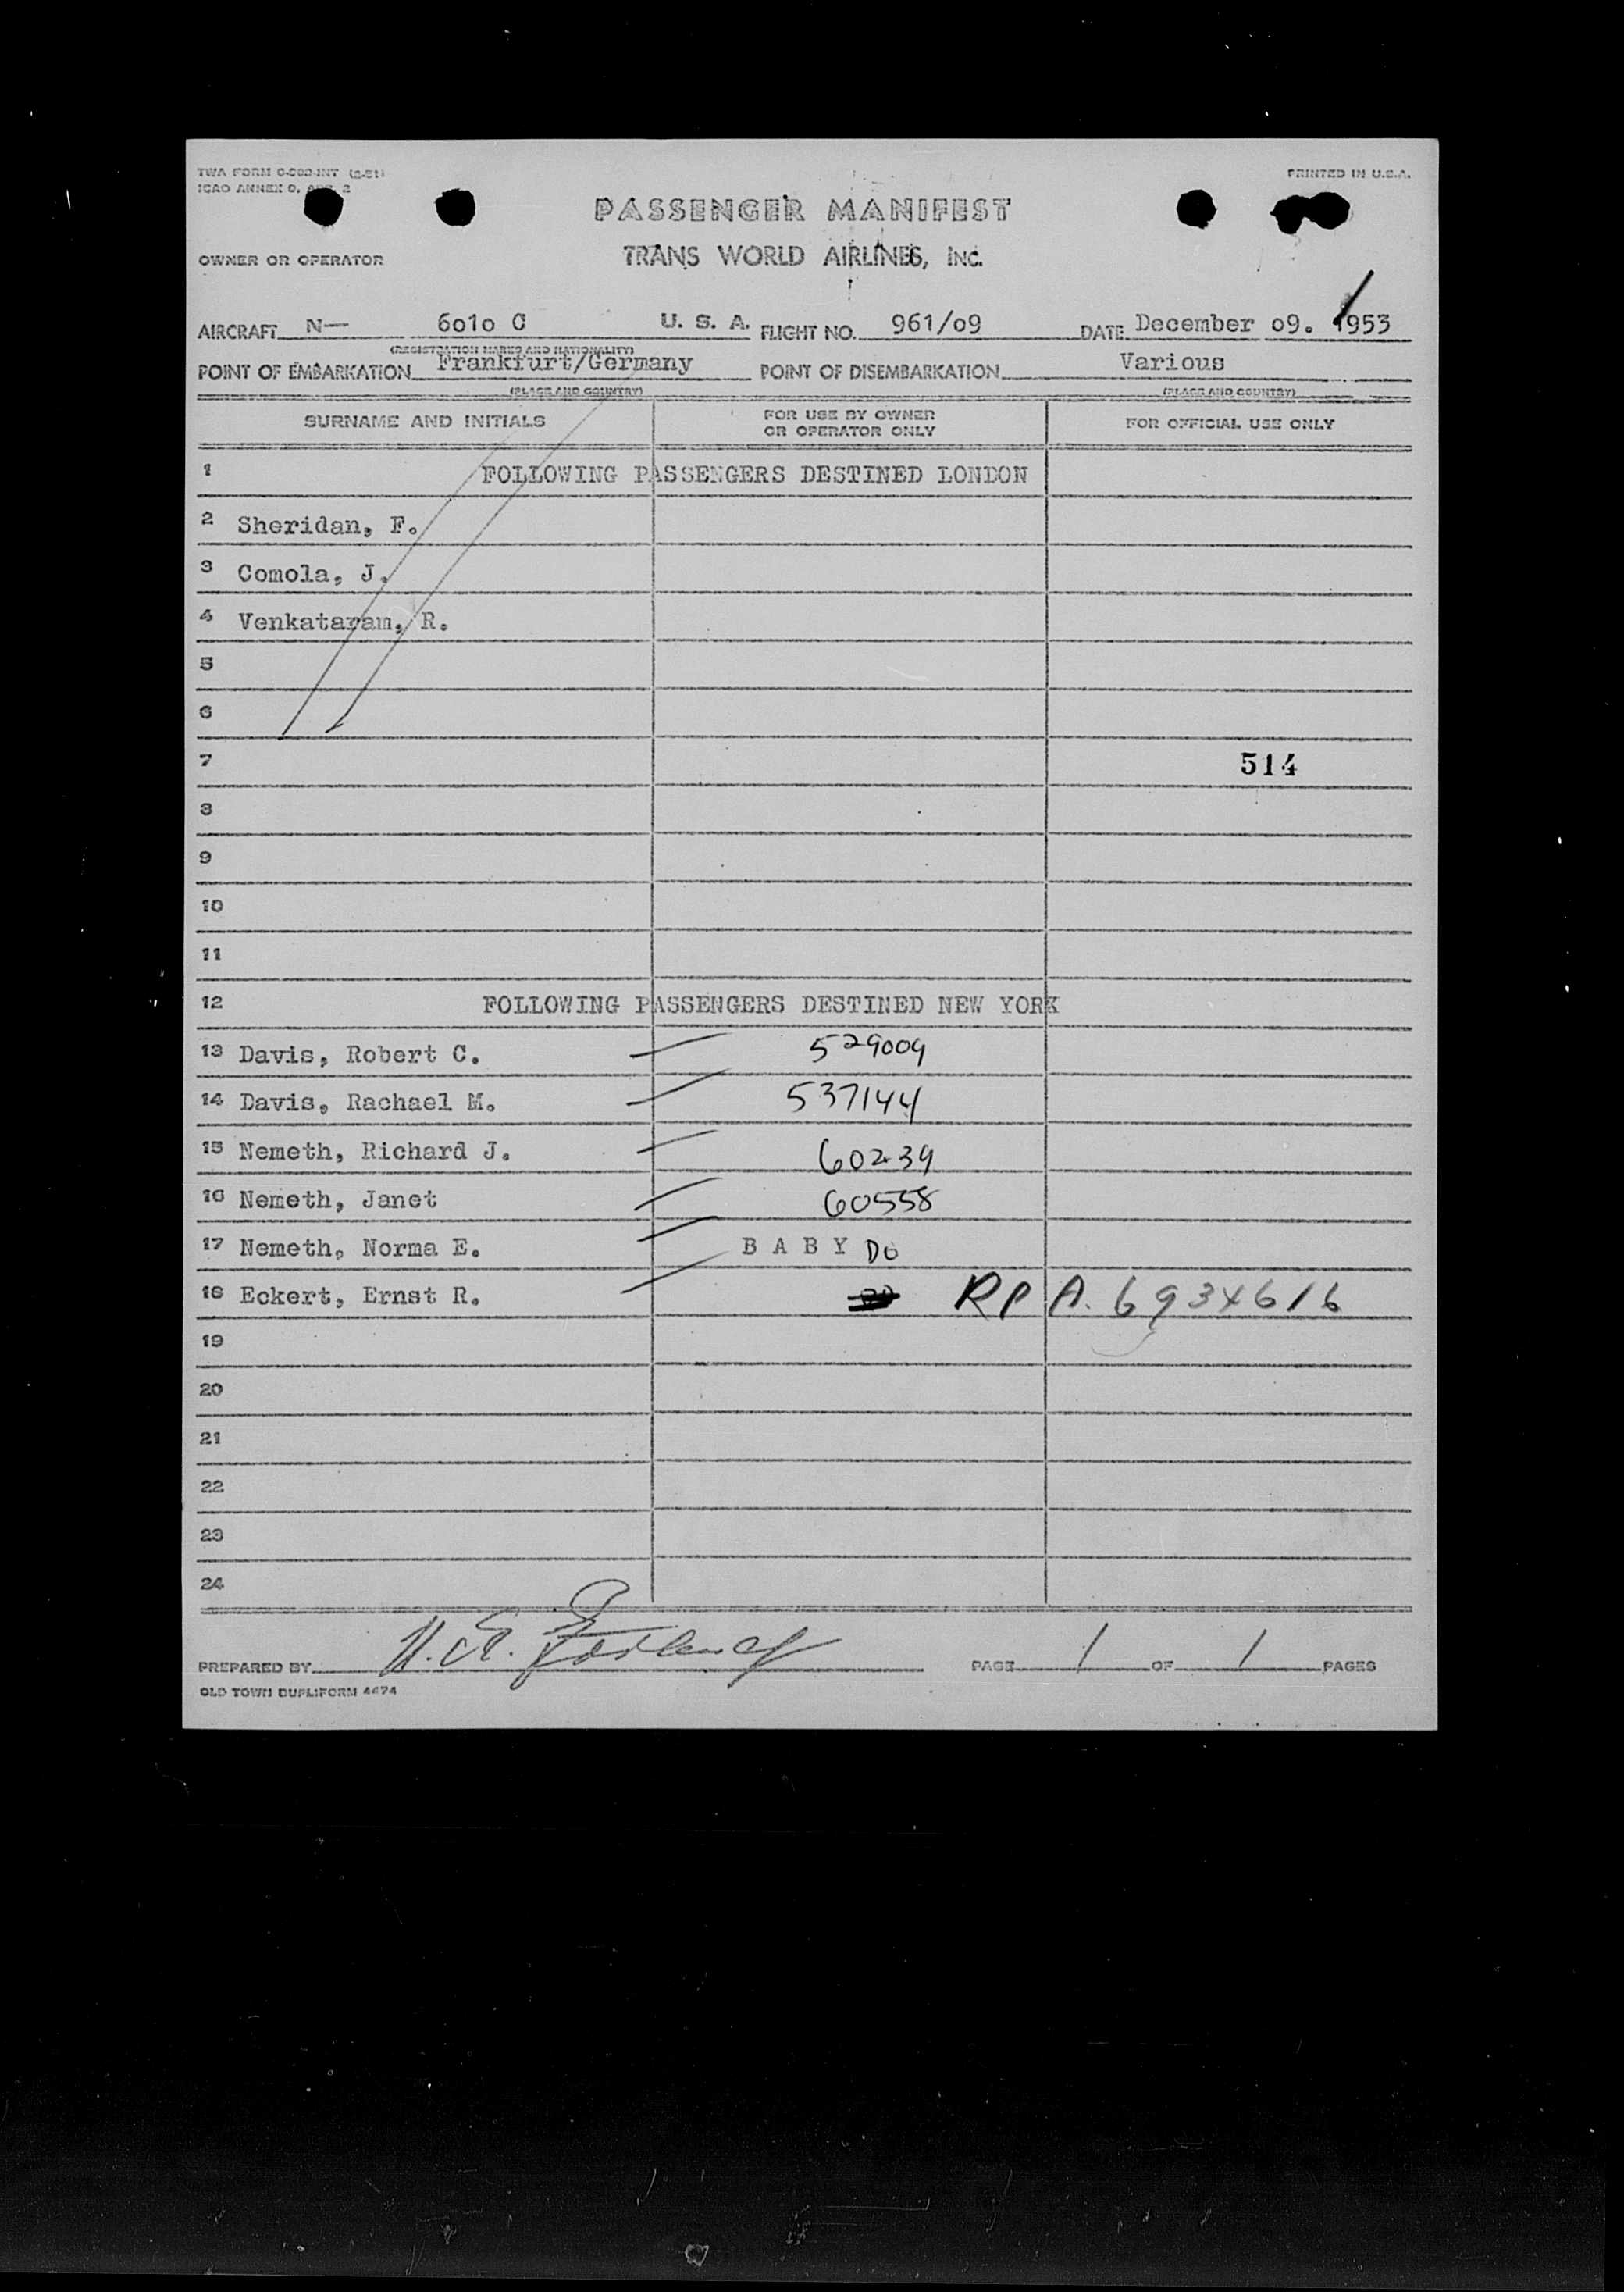 PRINTED IN U.S.A.
PASSENGER MANIFEST
OWNER OR OPERATOR TRANS WORLD AIRLINES, INC.
AIRCRAFT N— 6o1o C U. S. A. FLIGHT NO. 961/o9 DATE December o9. 1953
(REGISTRATION MARKS AND NATIONALITY)
POINT OF EMBARKATION Frankfurt/Germany POINT OF DISEMBARKATION Various
(PLACE AND COUNTRY) (PLACE AND COUNTRY)
SURNAME AND INITIALS FOR USE BY OWNER OR OPERATOR ONLY FOR OFFICIAL USE ONLY
1 FOLLOWING PASSENGERS DESTINED LONDON
2 Sheridan, F.
3 Comola, J.
4 Venkataram, R.
5
6
7 514
8
9
10
11
12 FOLLOWING PASSENGERS DESTINED NEW YORK
13 Davis, Robert C. 529009
14 Davis, Rachael M. 537144
15 Nemeth, Richard J. 60239
16 Nemeth, Janet 60558
17 Nemeth, Norma E. B A B Y Do
18 Eckert, Ernst R. RP A. 6934616
19
20
21
22
23
24
PREPARED BY PAGE 1 OF 1 PAGES
OLD TOWN DUPLIFORM 4474